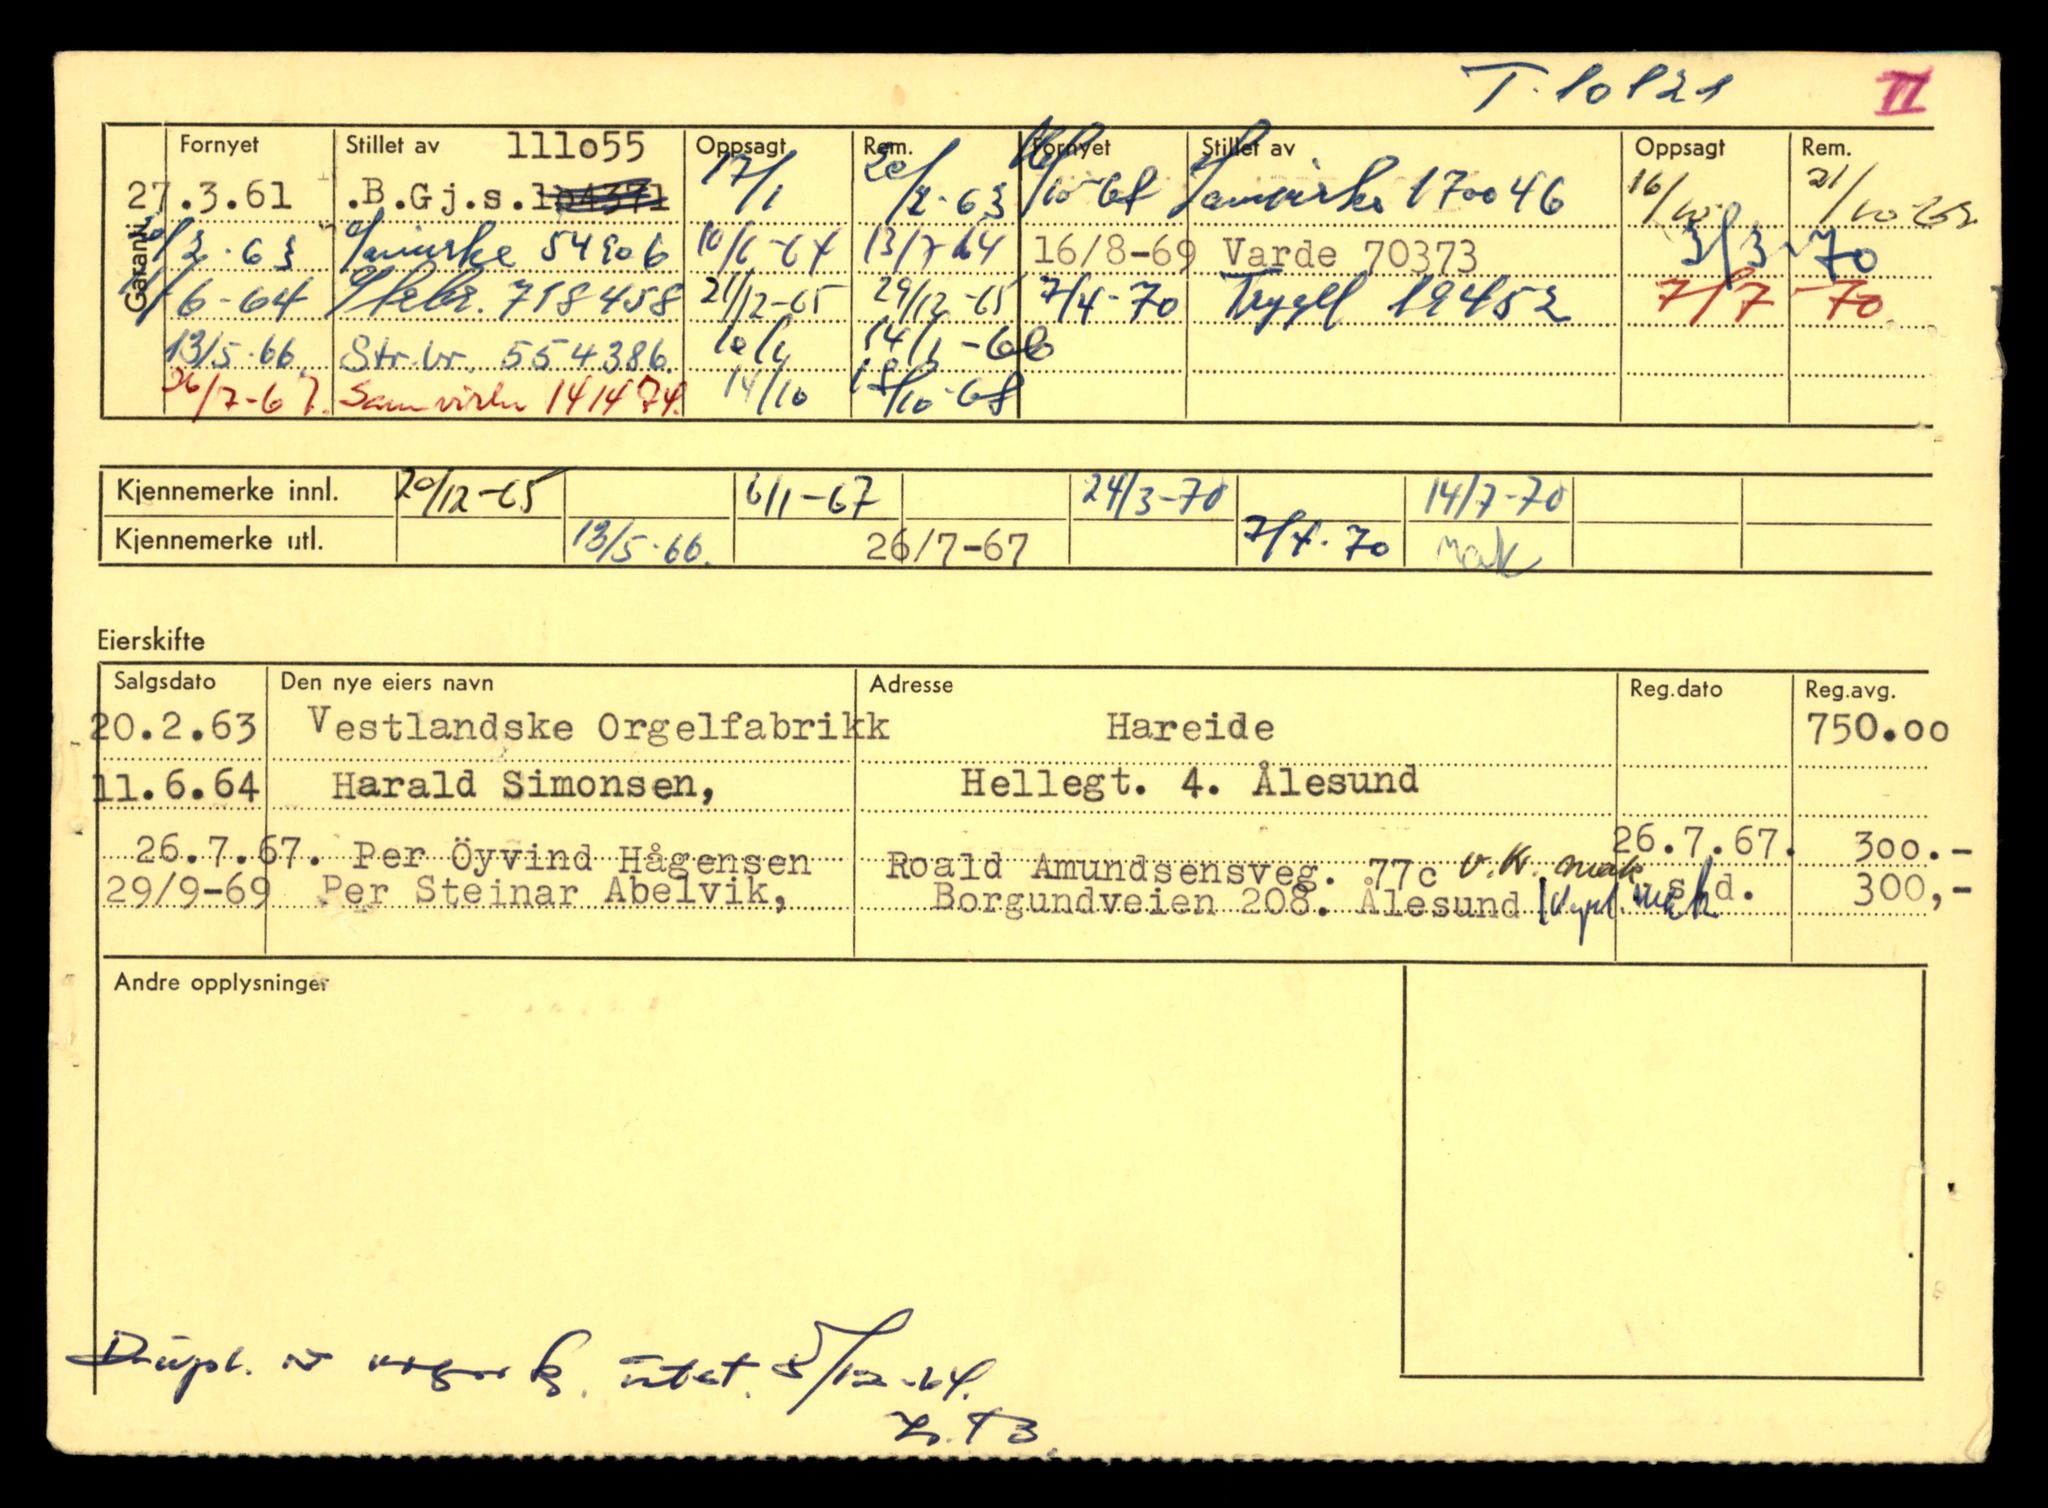 T-10121 II
Fornyet Stillet av 111o55 Oppsagt Rem. Fornyet Stillet av Oppsagt Rem.
Garanti
27.3.61 .B.Gj.s. 17/1 20/2-63 /10-68 Samvirke 170046 16/10 21/10-69
/2-63 Samvirke 54906 10/6-64 13/7-64 16/8-69 Varde 70373 3/3-70
/6-64 Stebr. 758458 21/12-65 29/12-65 7/4-70 Trygd 19452 7/7-70
13/5-66 Str.br. 554386. 10/1 14/1-66
26/7-67. Samvirke 141474. 14/10 18/10-68
Kjennemerke innl. 20/12-65 6/1-67 24/3-70 14/7-70
Kjennemerke utl. 13/5-66. 26/7-67 7/4-70 mak
Eierskifte
Salgsdato Den nye eiers navn Adresse Reg.dato Reg.avg.
20.2.63 Vestlandske Orgelfabrikk Hareide 750.oo
11.6.64 Harald Simonsen, Hellegt. 4. Ålesund
26.7.67. Per Öyvind Hågensen Roald Amundsensveg. 77c v.k. mak 26.7.67. 300.-
29/9-69 Per Steinar Abelvik, Borgundveien 208. Ålesund s.d. 300,-
Andre opplysninger
Dupl. av vognk. utst. 5/12-64.